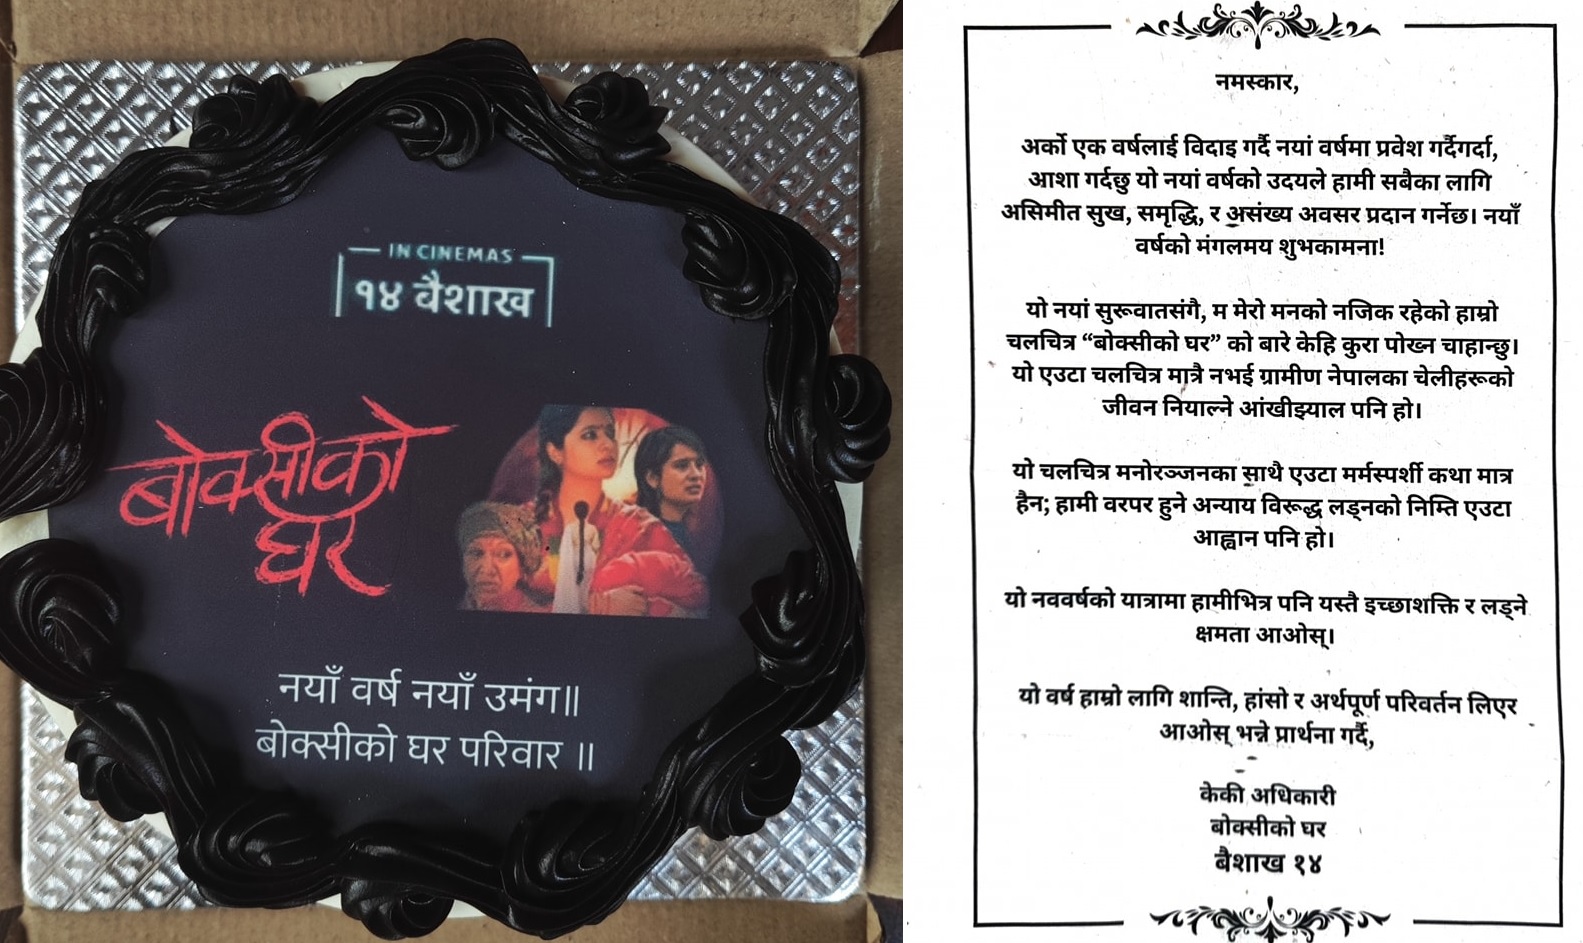 IN CINEMAS
१४ वैशाख
बोक्सीको
घर
नयाँ वर्ष नयाँ उमंग॥
बोक्सीको घर परिवार ॥
नमस्कार,
अर्को एक वर्षलाई विदाइ गर्दै नयां वर्षमा प्रवेश गर्दैगर्दा,
आशा गर्दछु यो नयां वर्षको उदयले हामी सबैका लागि
असिमीत सुख, समृद्धि, र असंख्य अवसर प्रदान गर्नेछ। नयाँ
वर्षको मंगलमय शुभकामना!
यो नयां सुरूवातसंगै, म मेरो मनको नजिक रहेको हाम्रो
चलचित्र “बोक्सीको घर” को बारे केहि कुरा पोख्न चाहान्छु।
यो एउटा चलचित्र मात्रै नभई ग्रामीण नेपालका चेलीहरूको
जीवन नियाल्ने आंखीझ्याल पनि हो।
यो चलचित्र मनोरञ्जनका साथै एउटा मर्मस्पर्शी कथा मात्र
हैन; हामी वरपर हुने अन्याय विरूद्ध लड्नको निम्ति एउटा
आह्वान पनि हो।
यो नववर्षको यात्रामा हामीभित्र पनि यस्तै इच्छाशक्ति र लड्ने
क्षमता आओस्।
यो वर्ष हाम्रो लागि शान्ति, हांसो र अर्थपूर्ण परिवर्तन लिएर
आओस् भन्ने प्रार्थना गर्दै,
केकी अधिकारी
बोक्सीको घर
बैशाख १४